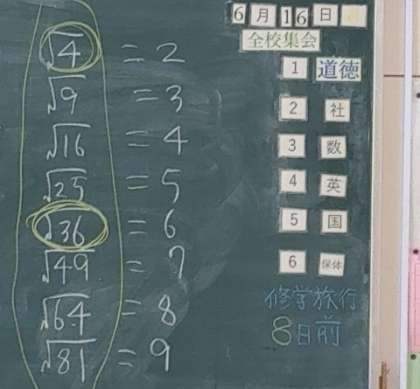 √4 = 2
√9 = 3
√16 = 4
√25 = 5
√36 = 6
√49 = 7
√64 = 8
√81 = 9
6月16日
全校集会
1 道徳
2 社
3 数
4 英
5 国
6 保体
修学旅行
8日前